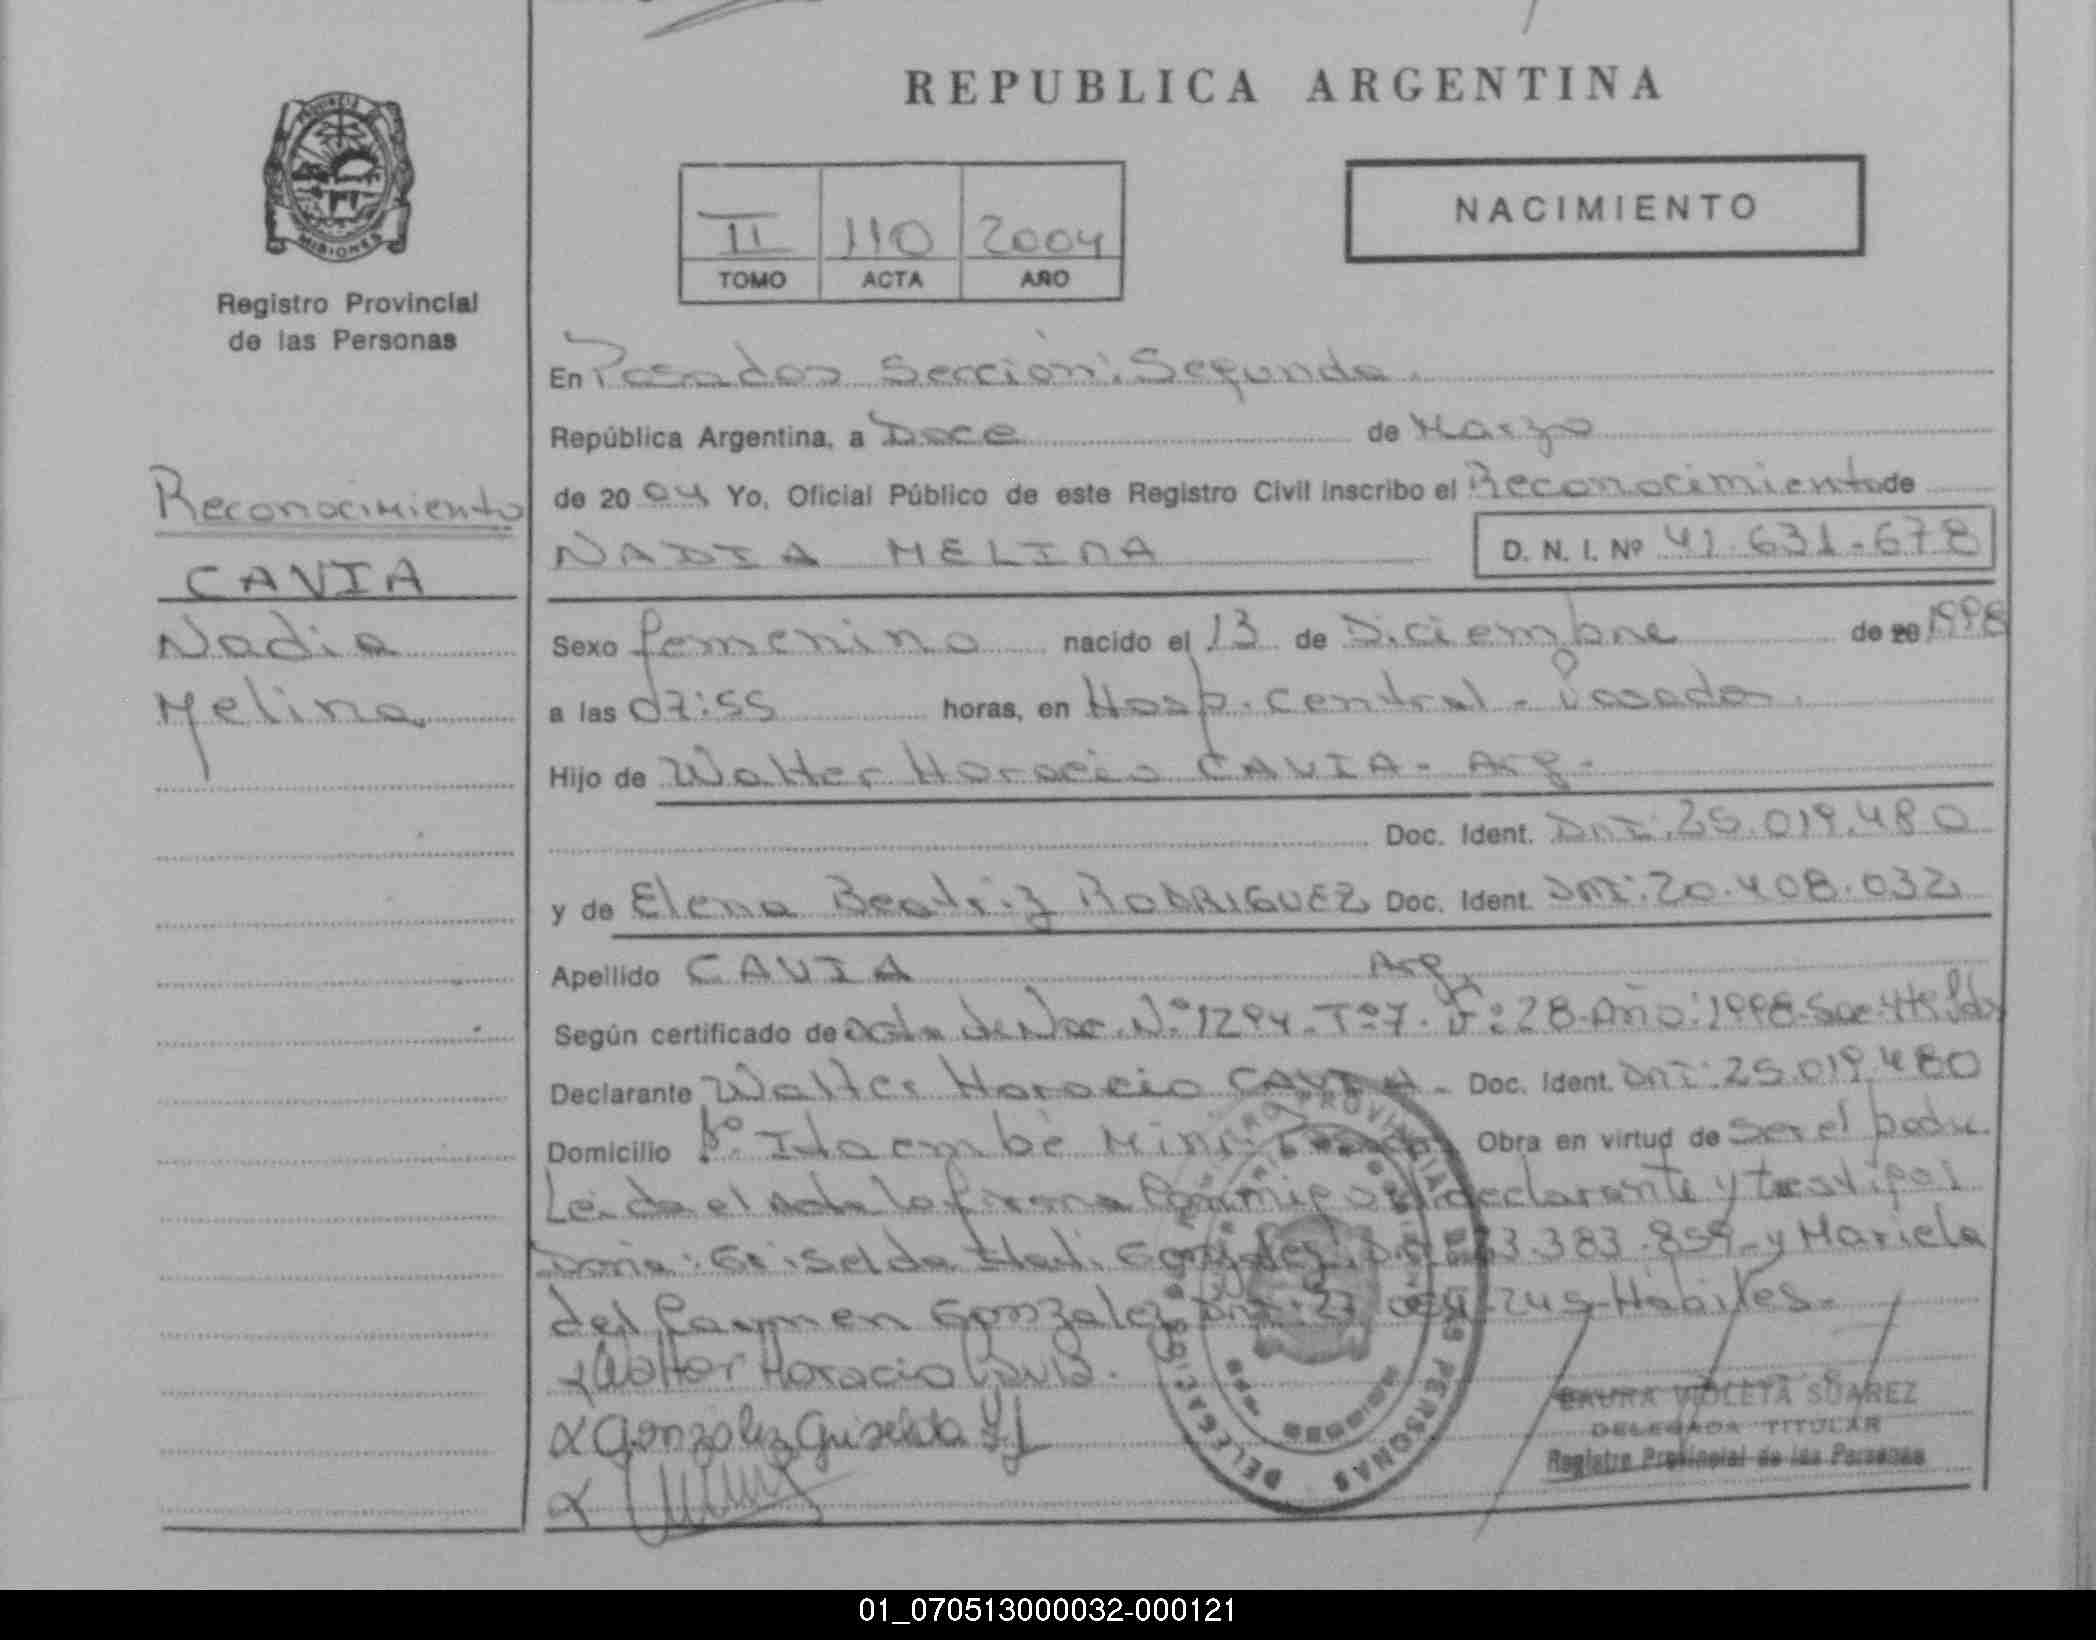 REPUBLICA ARGENTINA
PROVINCIA
MISIONES
Registro Provincial
de las Personas
II 110 2004
TOMO ACTA AÑO
NACIMIENTO
Reconocimiento
CAVIA
Nadia
Melina
En Posadas Sección: Segunda.
República Argentina, a Doce de Marzo
de 20 04 Yo, Oficial Público de este Registro Civil inscribo el Reconocimiento de
NADIA MELINA D. N. I. Nº 41.631.678
Sexo femenino nacido el 13 de Diciembre de 20 1998
a las 07:55 horas, en Hosp. Central - Posadas.
Hijo de Walter Horacio CAVIA - Arg -
Doc. Ident. DNI: 25.019.480
y de Elena Beatriz RODRIGUEZ Doc. Ident. DNI: 20.408.032
Apellido CAVIA Arg.
Según certificado de acta de Nac. Nº 1294. Tº 7. Fº: 28. Año: 1998. Sec. 4ta
Declarante Walter Horacio CAVIA - Doc. Ident. DNI: 25.019.480
Domicilio Bº. Itaembé Mini. Posadas Obra en virtud de ser el padre.
Leida el acta la firma declarante y testigos
Doña: Griselda Gonzalez 383.859 - y Mariela
del Carmen Gonzalez DNI: 27 245 - Hábiles.
x Walter Horacio Cavia.
x González Griselda
x
REGISTRO PROVINCIAL DE LAS PERSONAS
DELEGACION
LAURA VIOLETA SUAREZ
DELEGADA TITULAR
Registro Provincial de las Personas
01_070513000032-000121